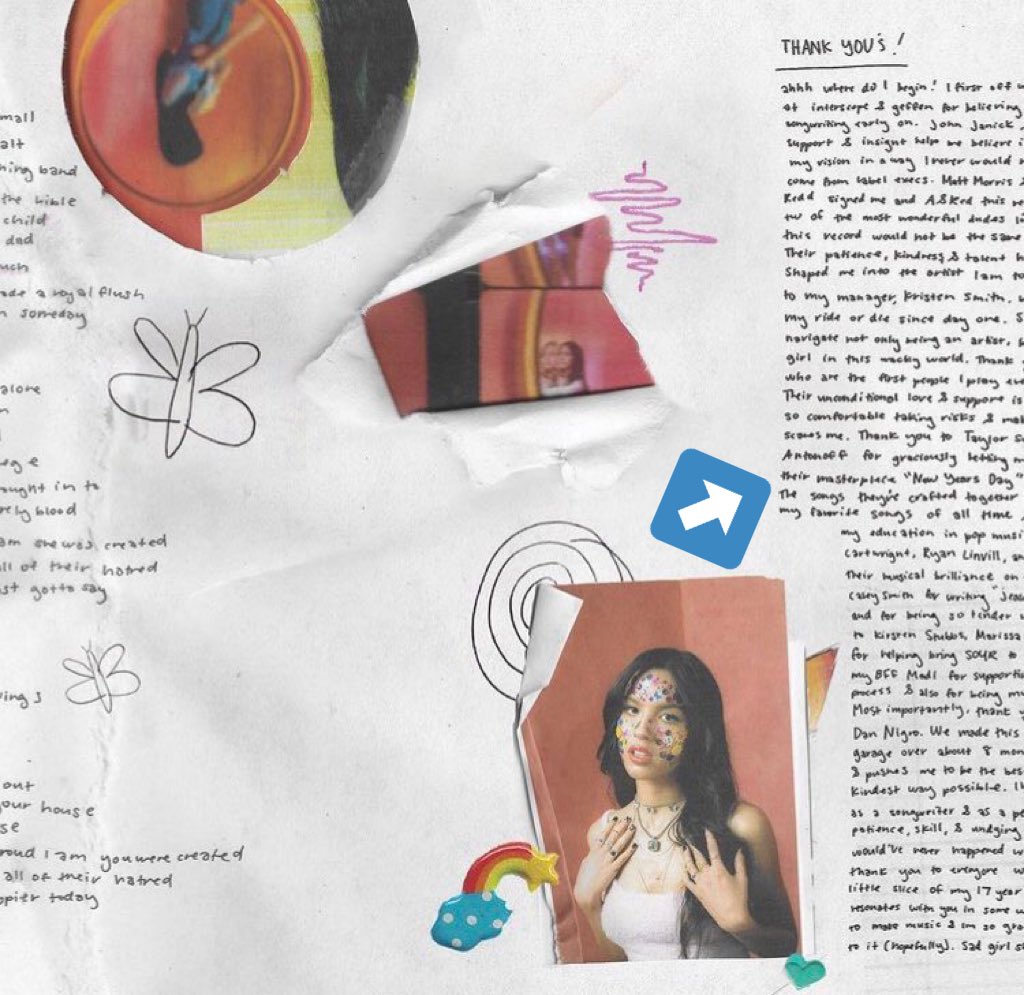 mall
alt
ning band
the bible
child
dad
uch
ade a royal flush
n someday
alone
n
l
ege
ought in to
rely blood
am she was created
all of their hatred
st gotta say
wings
out
your house
se
roud I am you were created
all of their hatred
ppier today
THANK YOU'S!
ahhh where do I begin! I first off w
at interscope & geffen for believing
songwriting early on. John Janick,
support & insight help me believe i
my vision in a way I never would
come from label execs. Matt Morris &
Kedd signed me and A&Red this re
tw of the most wonderful dudes i
this record would not be the same
Their patience, kindness & talent h
shaped me into the artist I am to
to my manager, Kristen Smith.
my ride or die since day one. S
navigate not only being an artist,
girl in this wacky world. Thank
who are the first people I play eve
Their unconditional love & support is
so comfortable taking risks & mak
scares me. Thank you to Taylor S
Antonoff for graciously letting m
their masterpiece "New Years Day"
The songs they've crafted together
my favorite songs of all time
my education in pop musi
Cartwright, Ryan Linvill, an
Their musical brilliance on
Casey Smith for writing "jea
and for being so tender
to Kirsten Stubbs, Marissa
for helping bring SOUR to
my BFF Madi for supporti
process & also for being m
Most importantly, thank y
Dan Nigro. We made this
garage over about 8 mon
& pushes me to be the bes
kindest way possible. I
as a songwriter & as a pe
patience, skill, & undying
would've never happened w
thank you to everyone w
little slice of my 17 year
resonates with you in some w
to make music & Im so gra
to it (hopefully). Sad girl s